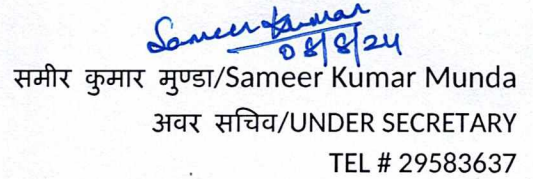 Sameer Kumar
08/8/24
समीर कुमार मुण्डा/Sameer Kumar Munda
अवर सचिव/UNDER SECRETARY
TEL # 29583637